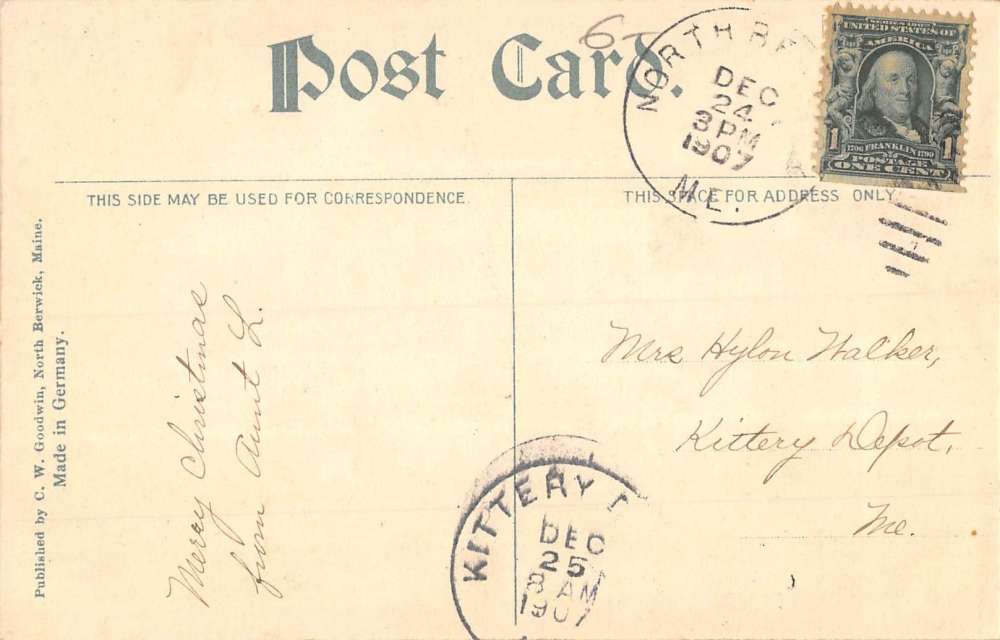 Post Card.
6-
NORTH BE
DEC
24
3 PM
1907
ME.
SERIES 1902
UNITED STATES OF
AMERICA
1 1706 FRANKLIN 1790 1
POSTAGE
ONE CENT
THIS SIDE MAY BE USED FOR CORRESPONDENCE
THIS SPACE FOR ADDRESS ONLY
Published by C. W. Goodwin, North Berwick, Maine.
Made in Germany.
Merry Christmas
from Aunt L.
Mrs Hylon Walker,
Kittery Depot,
Me.
KITTERY D
DEC
25
8 AM
1907